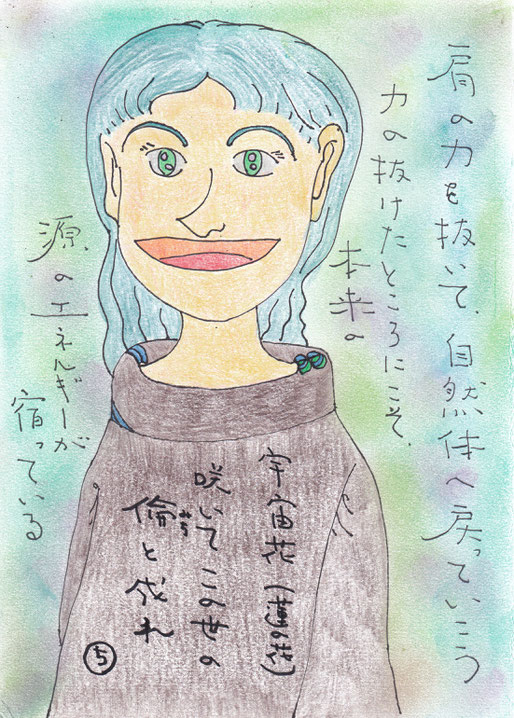 肩の力を抜いて、自然体へ戻っていこう
力の抜けたところにこそ、
本来の
源のエネルギーが
宿っている
宇宙花(蓮の花)
咲いてこの世の
倫と成れ
みち
ち